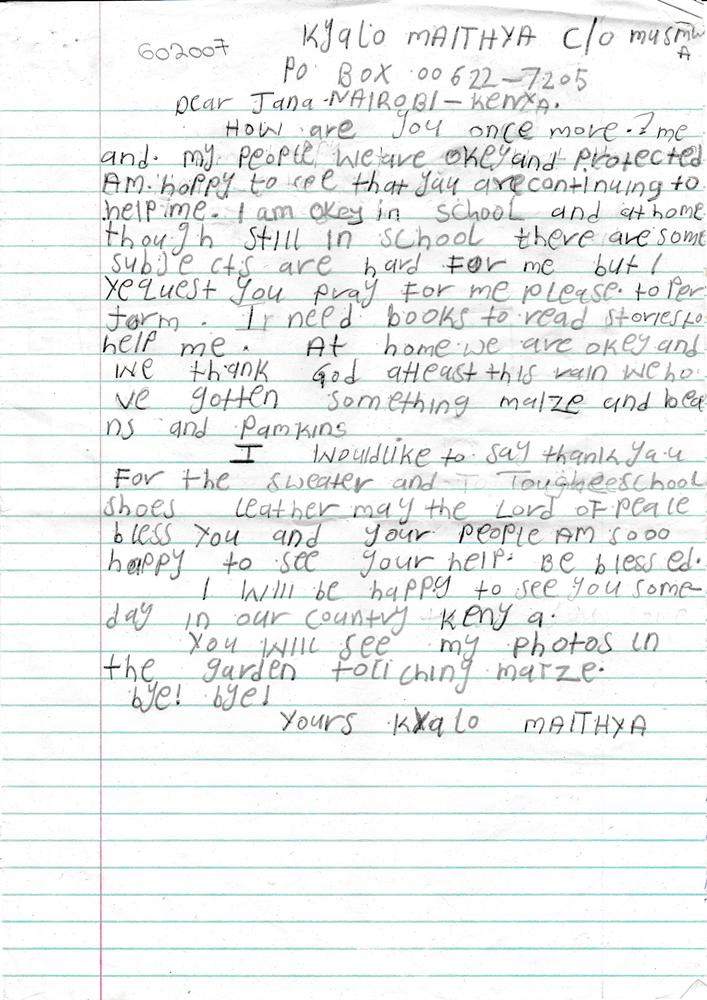 602007
Kyalo MAITHYA C/o musmw
A
PO BOX 00622-7205
Dear Jana-NAIROBI-KENYA.
How are you once more.? me
and. my people we are okey and protected
AM. happy to see that you are continuing to
help me. I am okey in school and at home
though still in school there are some
subje cts are hard for me but I
request you pray for me please. to Per
form. I need books to read stories to
help me. At home we are okey and
we thank God atleast this rain we ha
ve gotten something maize and bea
ns and Pamkins
I Would like to say thank you
For the sweater and Toughees school
shoes leather may the Lord of Peace
bless you and your people AM sooo
happy to see your help. Be bless ed.
I Will be happy to see you some-
day in our country Keny a.
You will see my photos in
the garden touching maize.
bye! bye!
Yours Kyalo MAITHYA